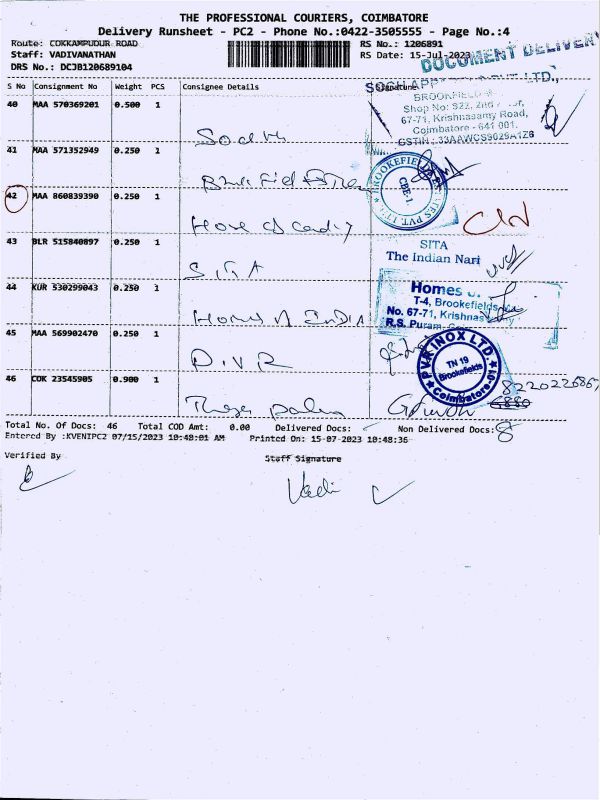 THE PROFESSIONAL COURIERS, COIMBATORE
Delivery Runsheet - PC2 - Phone No.:0422-3505555 - Page No.:4
Route: COKKAMPUDUR ROAD RS No.: 1206891
Staff: VADIVANATHAN RS Date: 15-Jul-2023
DRS No.: DCJB120689104
DOCUMENT DELIVERY
S No Consignment No Weight PCS Consignee Details Signature
40 MAA 570369201 0.500 1
BROOKFIELD
Shop No: 922, 2nd
67-71, Krishnasamy Road,
Coimbatore - 641 001.
GSTIN: 33AAWCS9029A1Z6
41 MAA 571352949 0.250 1
BROOKEFIELD ESTATES PVT. LTD.
CBE-1
42 MAA 860839390 0.250 1
House of Candy
43 BLR 515840897 0.250 1
SITA
SITA
The Indian Nari
44 KUR 530299043 0.250 1
Homes of INDIA
Homes
T-4, Brookefields
No. 67-71, Krishnas
R.S. Puram
45 MAA 569902470 0.250 1
P.V.R
PVR INOX LTD.
TN 19
Brookefields
Coimbatore-01
46 COK 23545905 0.900 1
Total No. Of Docs: 46 Total COD Amt: 0.00 Delivered Docs: Non Delivered Docs: 8
Entered By :KVENIPC2 07/15/2023 10:48:01 AM Printed On: 15-07-2023 10:48:36
Verified By Staff Signature
Vadi